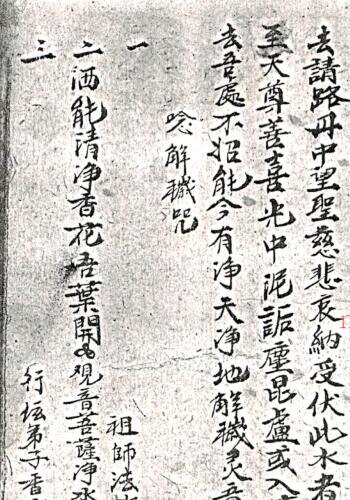 去請路丹中望聖慈悲哀納受伏此水者
至天尊善喜光中泥詬塵昆盧或入
去吾處不招能今有净天净地解穢灵吾
唸解穢咒
一　祖師法
二洒能清净香花吾葉開　观音菩薩净水
三　行坛弟子香